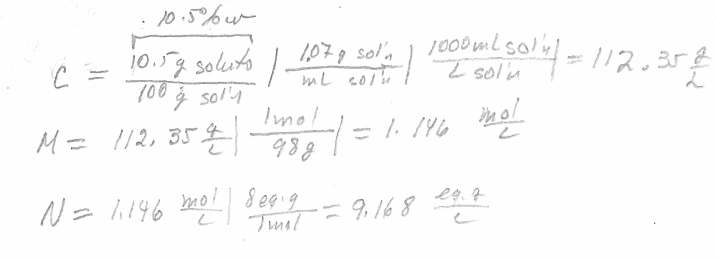 10.5% w
C = 10.5 g soluto / 100 g sol'n | 1.07 g sol'n / mL sol'n | 1000 mL sol'n / L sol'n | = 112.35 g/L
M = 112.35 g/L | 1 mol / 98 g | = 1.146 mol/L
N = 1.146 mol/L | 8 eq.g / 1 mol = 9.168 eq.g/L